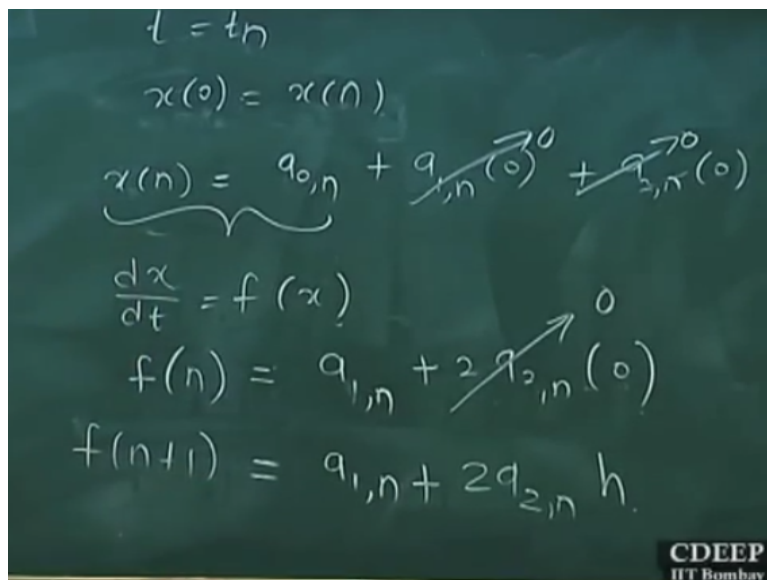 t = tn
x(0) = x(n)
x(n) = a0,n + a1,n (0) 0 + a2,n (0) 0
dx/dt = f(x)
f(n) = a1,n + 2 a2,n (0) 0
f(n+1) = a1,n + 2a2,n h
CDEEP
IIT Bombay